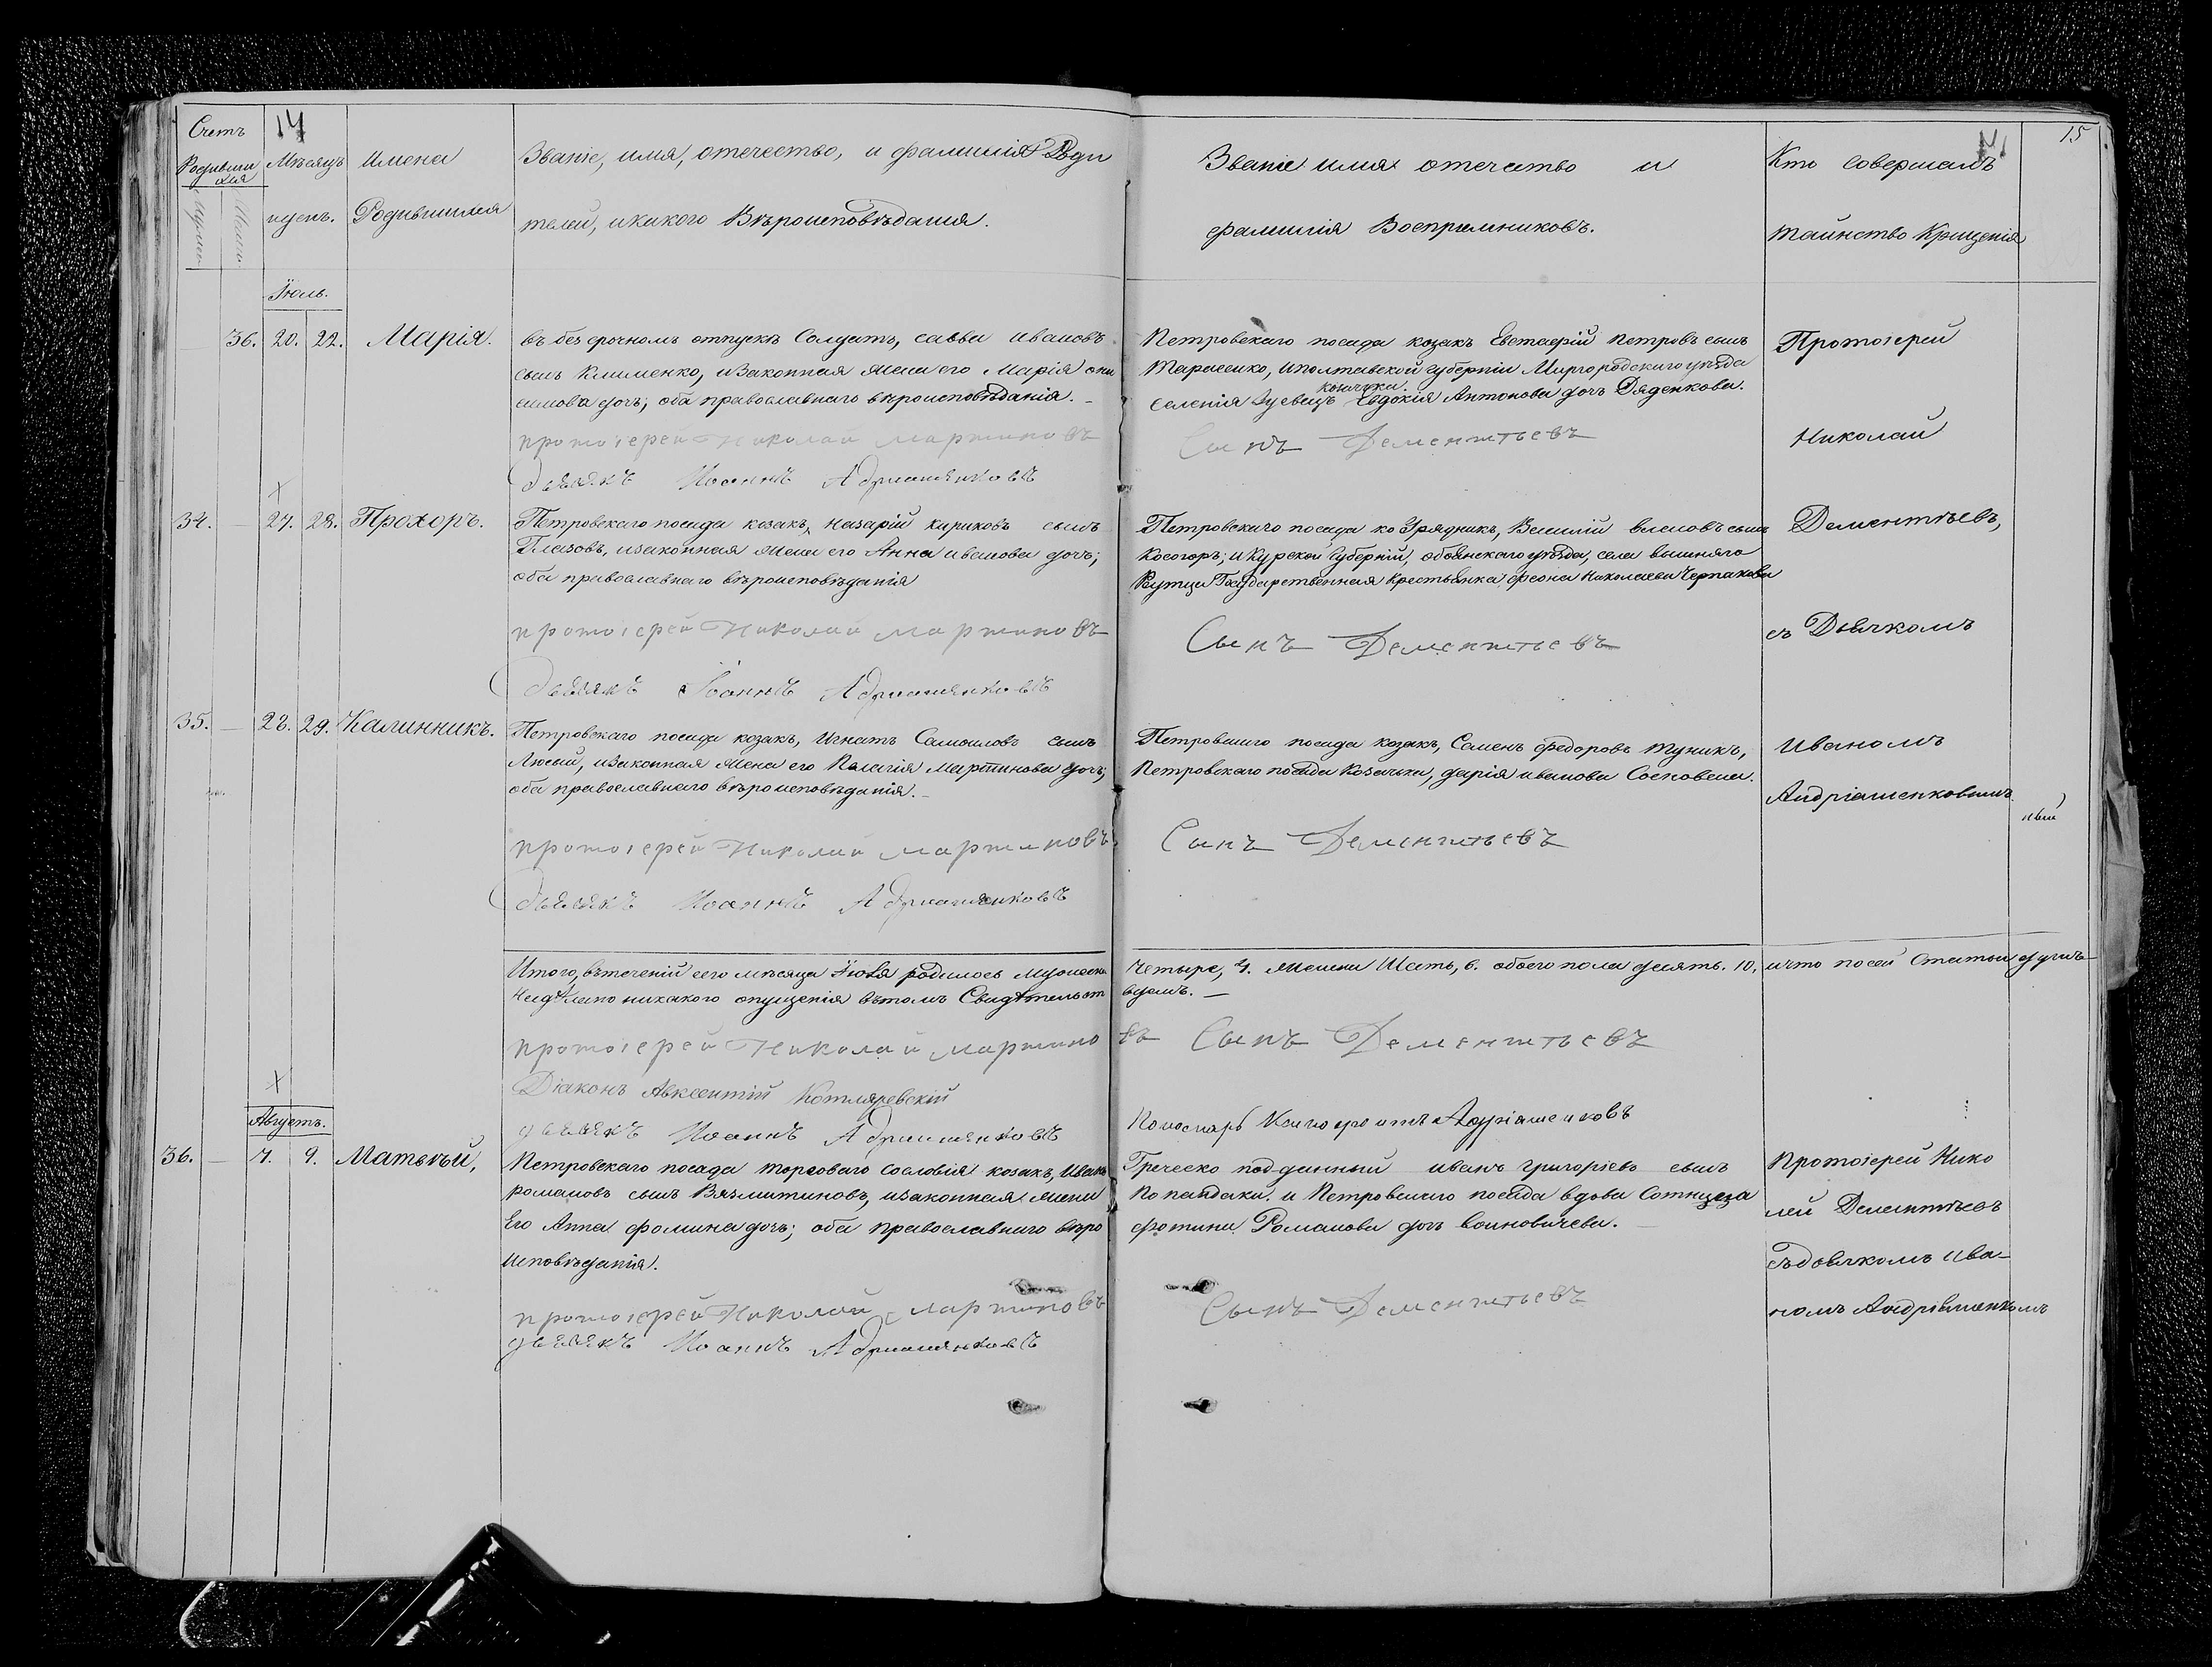 Счетъ
14
Родивши
хся
Мужеска
Женска
Мѣсяцъ
иденъ.
Имена
Родившихся
Званіе, имя, отечество, и фамилія Роди
телей, икакого Вѣроисповѣданія.
Званіе имя отечество и
фамилія Воспріемниковъ.
Кто совершалъ
таинство Крещенія
15
Іюль.
36. 20. 22. Марія.
въ безсрочномъ отпускѣ Солдатъ, савва ивановъ
сынъ Клименко, изаконная жена его Марія они
симова дочь; оба православнаго вѣроисповѣданія.
протоіерей Николай мартиновъ
дьячекъ Иоаннъ Адриашенковъ
Петровскаго посада козакъ Евстафій петровъ сынъ
Тарасенко, иполтавской губерніи Миргородскаго уѣзда
козачка.
селенія Зуевецъ Евдокія Антонова дочь Дяденкова.
Сынъ Дементьевъ
Протоіерей
Николай
34. 27. 28. Прохоръ.
Петровскаго посада козакъ, назарій кириковъ сынъ
Глазовъ, изаконная жена его Анна иванова дочь;
оба православнаго вѣроисповѣданія
протоіерей Николай мартиновъ
дьячекъ Іоаннъ Адриашенковъ
Петровскаго посада сынъ
Косогоръ; и курской губерніи, обоянскаго уѣзда, села вышняго
Реутца Государственная крестьянка, феона николаева Черпакова
Сынъ Дементьевъ
Дементьевъ,
съ Дьячкомъ
35. 28. 29. Калинникъ.
Петровскаго посада козакъ, Игнатъ Самоиловъ сынъ
изаконная жена его Пелагія мартинова дочь;
оба православнаго вѣроисповѣданія.
протоіерей Николай мартиновъ
дьячекъ Иоаннъ Адриашенковъ
Петровскаго посада козакъ, Семенъ федоровъ
Петровскаго посада Козачка, дарія иванова
Сынъ Дементьевъ
Иваномъ
Андріашенковымъ
Итого, втеченіи сего мѣсяца Іюля родилось мужеска
четыре, 4. женска Шесть, 6. обоего пола десять. 10, ичто посей статьи
Неидѣлано никакого опущенія втомъ Свидѣтельст
вуемъ.
протоіерей Николай мартино
въ Сынъ Дементьевъ
Діаконъ Авксентій Котляревскій
дьячекъ Иоаннъ Адриашенковъ
Пономарь Андріашенковъ
Августъ.
36. 7. 9. Матвѣй,
Петровскаго посада торговаго сословія козакъ, Иванъ
романовъ сынъ Вязмитиновъ, изаконная жена
Его Анна фомина дочь; оба православнаго вѣро
исповѣданія.
протоіерей Николай мартиновъ
дьячекъ Иоаннъ Адриашенковъ
Греческо подданный иванъ григоріевъ сынъ
Попандаки. и Петровскаго посада вдова
фотина Романова дочь воиновичева.
Сынъ Дементьевъ
Протоіерей Нико
лай Дементьевъ
съдьячкомъ Ива-
номъ Андріашенкомъ